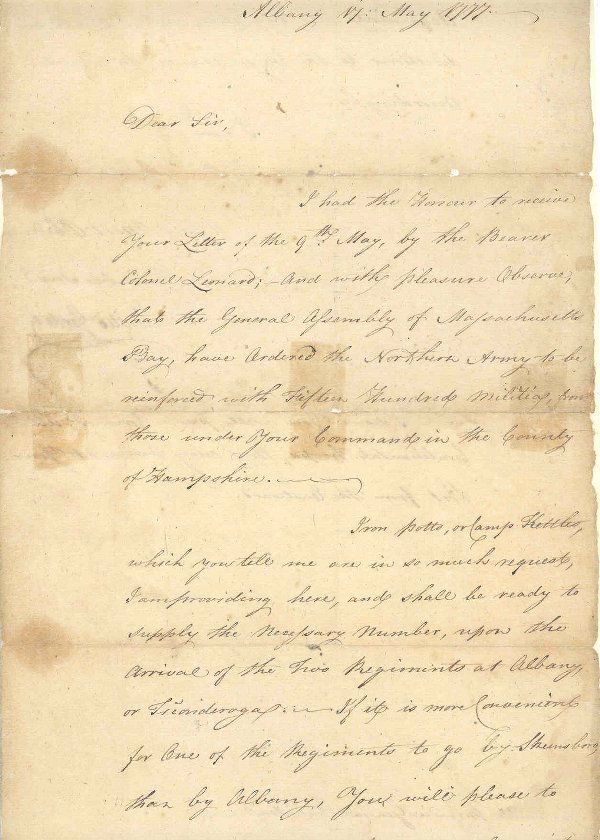 Albany 17: May 1777.
Dear Sir,
I had the Honour to receive
Your Letter of the 9th May, by the Bearer
Colonel Leonard; - And with pleasure Observe,
that the General Assembly of Massachusetts
Bay, have Ordered the Northern Army to be
reinforced with Fifteen Hundred Militia, from
those under Your Command in the County
of Hampshire.
Iron potts, or Camp Kettles,
which you tell me are in so much request,
I am providing here, and shall be ready to
supply the Necessary Number, upon the
Arrival of the Two Regiments at Albany,
or Ticonderoga: - If it is more Convenient
for One of the Regiments to go by Skeensboro
than by Albany, You will please to